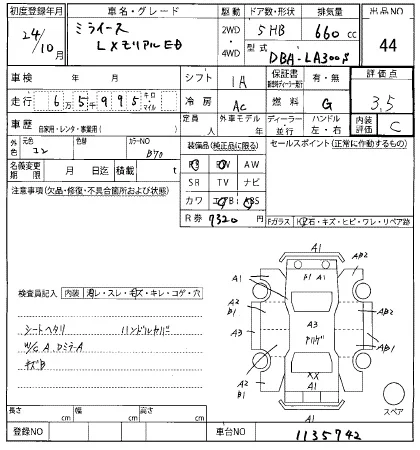 初度登録年月 車名・グレード 駆動 ドア数・形状 排気量 出品NO
24/10月 ミライース 2WD・4WD 5HB 660cc 44
型式 DBA-LA300S
車検 年 月 シフト IA 保証書 有・無 評価点
走行 6万5千995キロ・マイル 冷房 AC 燃料 G 3.5
車歴 自家用・レンタ・事業用( ) 定員 外車モデル 年 ディーラー・並行 ハンドル 左・右 内装評価 C
外色 元色 色替 カラーNO 装備品(純正品に限る) セールスポイント(正常に作動するもの)
コン B70 PS PW AW
名義変更期限 月 日迄 積載 t SR TV ナビ
注意事項(欠品・修復・不具合箇所および状態) カワ エアB ABS
R券 7320円 Fガラス 飛石・キズ・ヒビ・ワレ・リペア跡
A1
A1 A1 AB2
A2 B1 A2
A3 A3 A3
A2 B1 AB1
A2 XX A2
B1 A1
A1
検査員記入 内装 汚レ・スレ・キズ・キレ・コゲ・穴
シートヘタリ ハンドルカバー
W/G A、DミラーA
キズB
スペア
長さ cm 幅 cm 高さ cm
登録NO 車台NO 1135742